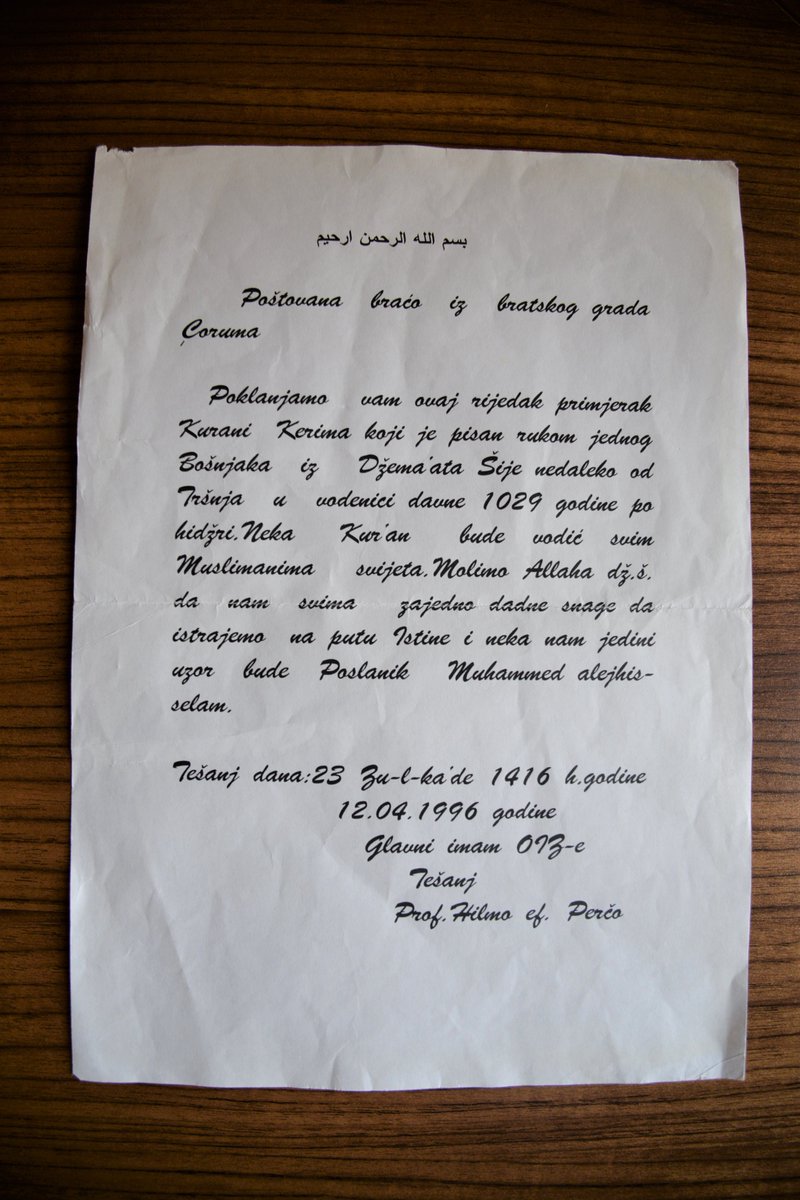 بسم الله الرحمن ارحيم
Poštovana braćo iz bratskog grada
Çoruma
Poklanjamo vam ovaj rijedak primjerak
Kurani Kerima koji je pisan rukom jednog
Bošnjaka iz Džema'ata Šije nedaleko od
Tršnja u vodenici davne 1029 godine po
hidžri.Neka Kur'an bude vodić svim
Muslimanima svijeta.Molimo Allaha dž.š.
da nam svima zajedno dadne snage da
istrajemo na putu Istine i neka nam jedini
uzor bude Poslanik Muhammed alejhis-
selam.
Tešanj dana:23 Zu-l-ka'de 1416 h.godine
12.04.1996 godine
Glavni imam OIZ-e
Tešanj
Prof.Hilmo ef. Perčo